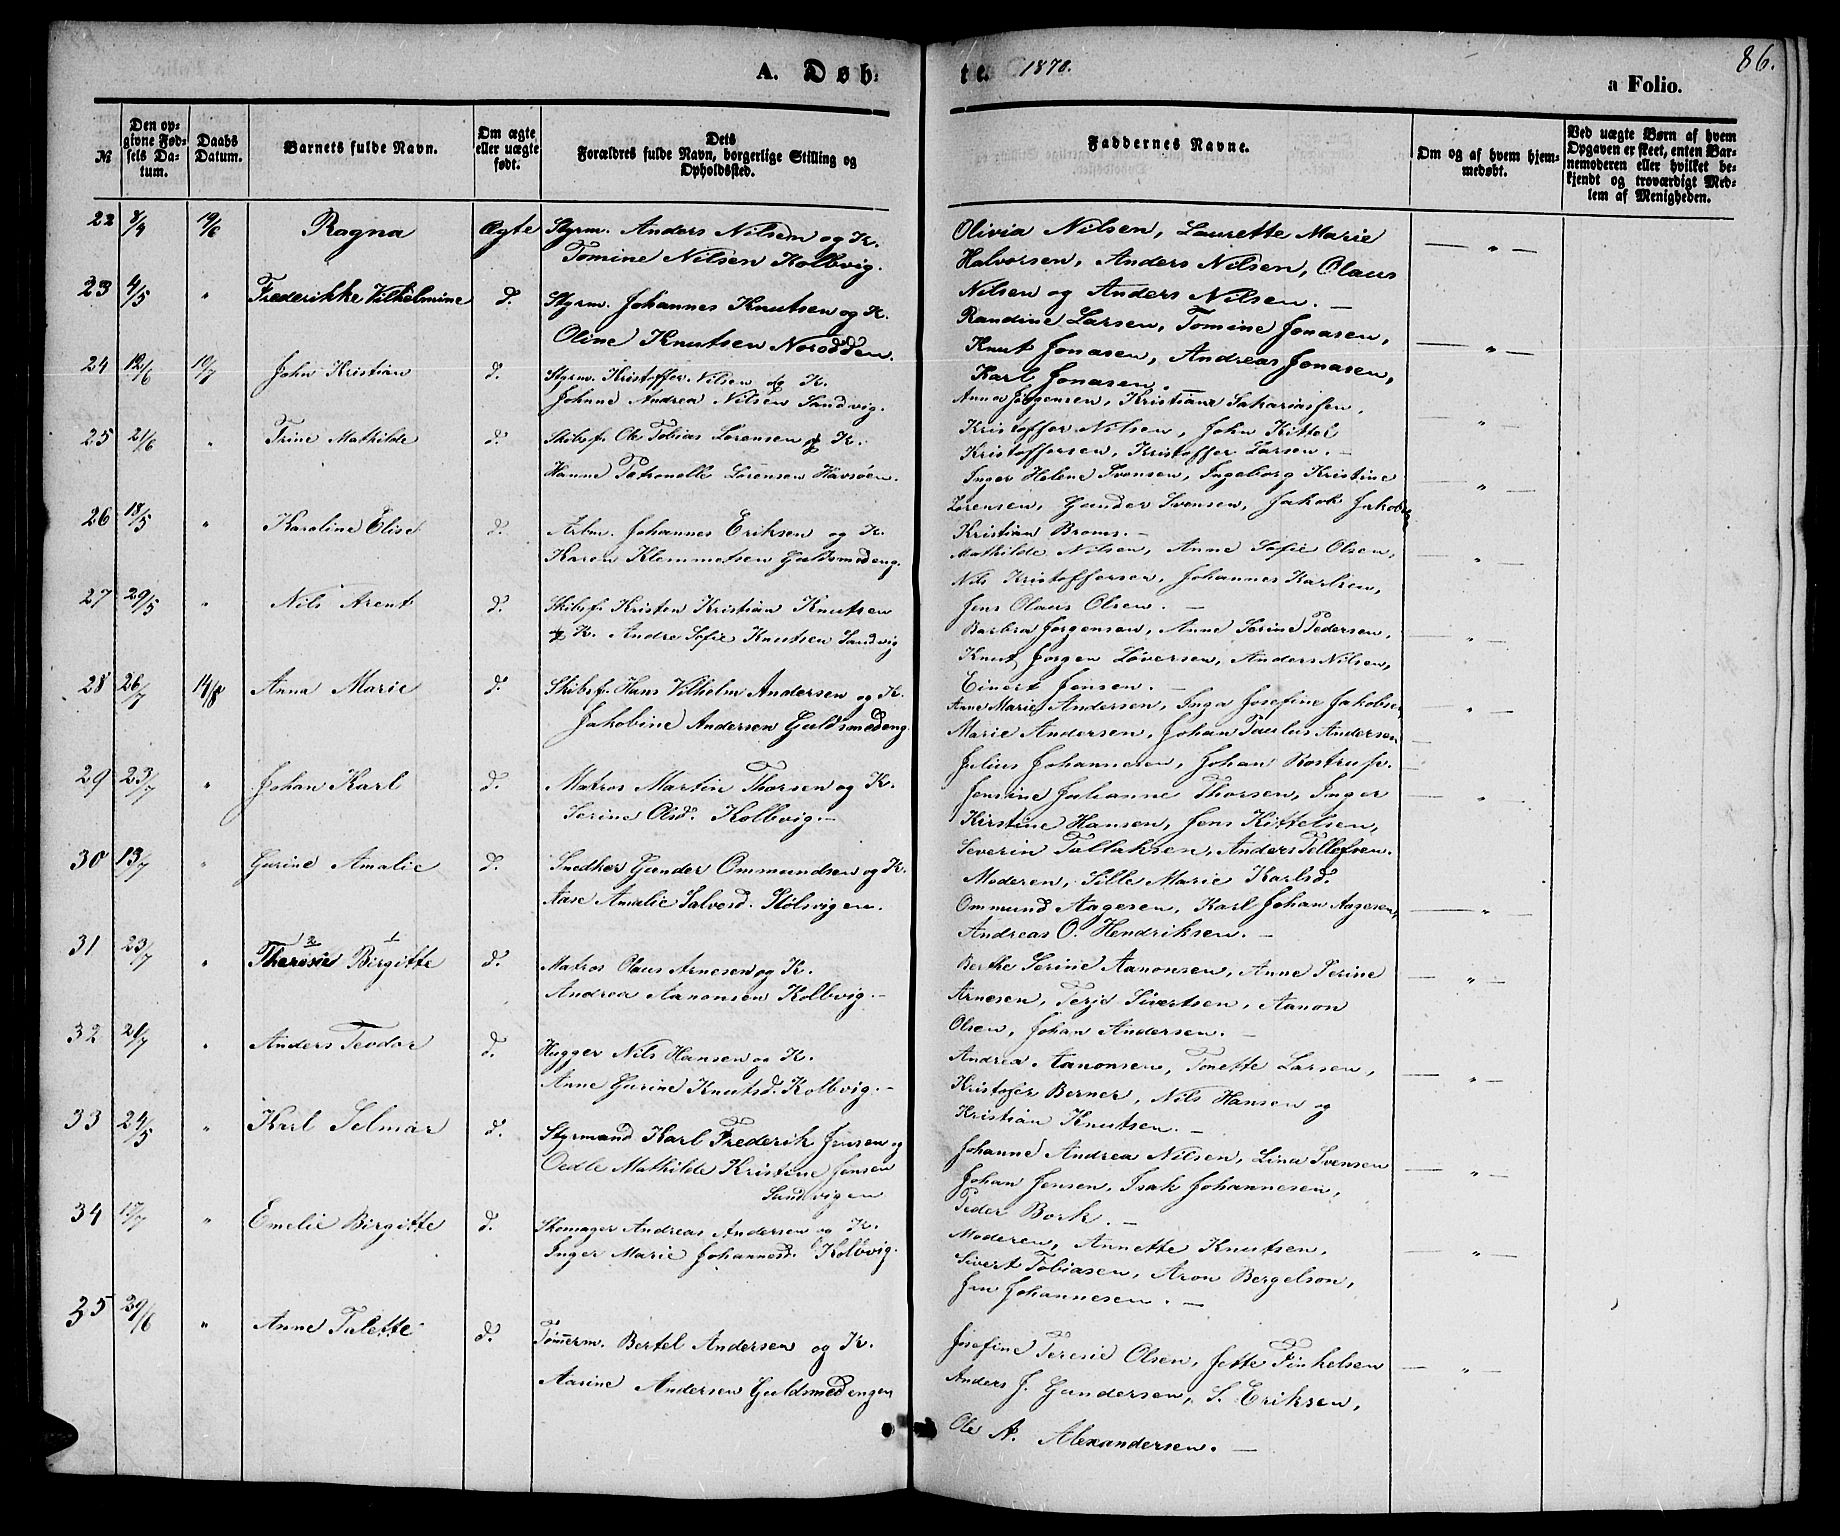 A. Døb-
te. 1870.
86.
a Folio.
№
Den op-
givne Fød-
sels Da-
tum.
Daabs
Datum.
Barnets fulde Navn.
Om ægte
eller uægte
født.
Dets
Forældres fulde Navn, borgerlige Stilling og
Opholdssted.
Faddernes Navne.
Om og af hvem hjem-
medøbt.
Ved uægte Børn af hvem
Opgaven er skeet, enten Bar-
nemoderen eller hvilket be-
kjendt og troværdigt Med-
lem af Menigheden.
22 19/6 Ragna Ægte Styrm. Anders Nilsen og K.
Tomine Nilsen Kolbvig.
Olivia Nilsen, Laurette Marie
Halvorsen, Anders Nilsen, Olaus
Nilsen og Anders Nilsen. —
— " —
23 4/5 " Frederikke Vilhelmine d. Styrm. Johannes Knutsen og K.
Oline Knutsen Norodden.
Randine Larsen, Tomine Jonasen,
Knut Jonasen, Andreas Jonasen,
Karl Jonasen.
— " —
24 12/6 10/7 John Kristian d. Styrm. Kristoffer Nilsen og K.
Johnne Andrea Nilsen Sandvig.
Anna Jørgensen, Kristiane Sakariassen,
Kristoffer Nilsen, John Kittel
Kristoffersen, Kristoffer Larsen. —
— " —
25 21/6 " Trine Mathilde d. Skibsf. Ole Tobias Lorensen og K.
Hanne Petronelle Lorensen Havsøen.
Inger Helene Svensen, Ingeborg Kristine
Lorensen, Gunder Svensen, Jakob Jakobsen
Kristian Bromes. —
— " —
26 18/5 " Karoline Elise d. Arbm. Johannes Eriksen og K.
Karen Klemmetsen Guldsmedeng.
Mathilde Nilsen, Anne Sofie Olsen,
Nils Kristoffersen, Johannes Karlsen,
Jens Olaus Olsen. —
— " —
27 29/5 " Nils Arent d. Skibsf. Kristen Kristian Knutsen
og K. Andre Sofie Knutsen Sandvig
Barbra Jørgensen, Anne Serine Pedersen,
Knut Jørgen Løversen, Anders Nilsen,
Einert Jensen. —
— " —
28 26/7 14/8 Anna Marie d. Skibsf. Hans Vilhelm Andersen og K.
Jakobine Andersen Guldsmedeng
Anne Marie Andersen, Inga Josefine Jakobsen,
Marie Andersen, Johan Paulus Andersen
Julius Johannesen, Johan Rostrup.
— " —
29 23/7 " Johan Karl d. Matros Martin Thorsen og K.
Serine Olsd. Kolbvig. —
Jensine Julianne Thorsen, Inger
Kirstine Hansen, Jens Kittelsen,
Severin Tallaksen, Anders Tellefsen.
— " —
30 13/7 " Gurine Amalie d. Snedker Gunder Ommundsen og K.
Aase Amalie Salvesd. Stølsvigen.
Moderen, Sille Marie Karlsd.
Ommund Aagesen, Karl Johan Aagesen,
Andreas O. Hendriksen. —
— " —
31 23/7 " Therese Birgitte d. Matros Olaus Arnesen og K.
Andrea Aanonsen Kolbvig. —
Berthe Serine Aanonsen, Anne Serine
Arnesen, Terjd Sivertsen, Aanon
Olsen, Johan Andersen. —
— " —
32 21/7 " Anders Teodor d. Hugger Nils Hansen og K.
Anne Gurine Knutsd. Kolbvig. —
Andrea Aanonsen, Tonette Larsen,
Kristofer Berner, Nils Hansen og
Kristian Knutsen. —
— " —
33 24/5 " Karl Selmar d. Styrmand Karl Frederik Jensen og
Oedle Mathilde Kristine Jensen
Sandvigen
Johanne Andrea Nilsen, Lina Svensen
Johan Jensen, Isak Johannesen,
Peder Bork. —
— " —
34 17/7 " Emelie Birgitte d. Skomager Andreas Andersen og K.
Inger Marie Johannesd. Kolbvig.
Moderen, Annette Knutsen,
Sivert Tobiasen, Aron Bergelson,
Jens Johannesen. —
— " —
35 29/6 " Anne Talette d. Tømmerm. Bertel Andersen og K.
Aasine Andersen Guldsmedengen
Josefine Teresie Olsen, Jette Finkelsen
Anders J. Gundersen, S. Eriksen,
Ole A. Alexandersen. —
— " —